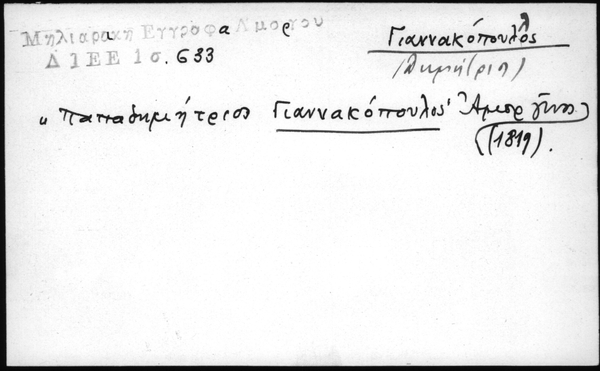 Μηλιαρακη Εγγραφα Αμοργου
Δ ΙΕΕ 1 σ. 633
Γιαννακόπουλος
(Δημήτρι)
„ Παπαδημήτριος Γιαννακόπουλος"
(1819).